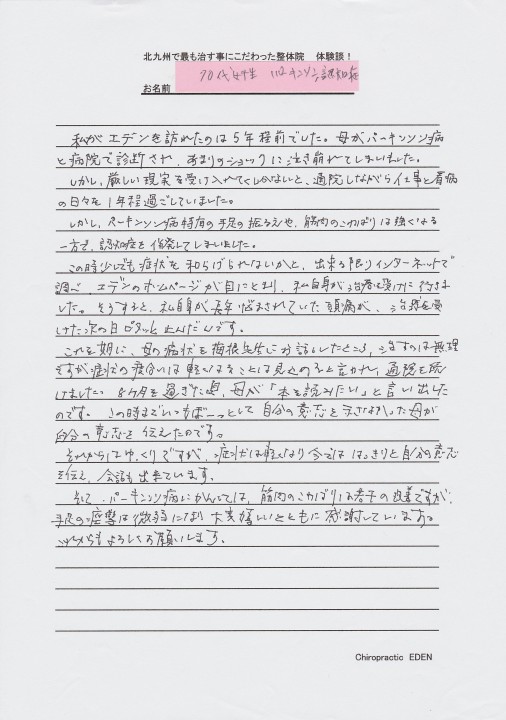 北九州で最も治す事にこだわった整体院　体験談！
お名前　70代女性　パーキンソン、認知症
私がエデンを訪れたのは5年程前でした。母がパーキンソン病
と病院で診断され、あまりのショックに泣き崩れてしまいました。
しかし、厳しい現実を受け入れてくしかないと、通院しながら仕事と看病
の日々を1年程過ごしていました。
しかし、パーキンソン病特有の手足の振るえや、筋肉のこわばりは強くなる
一方で、認知症を併発してしまいました。
この時少しでも症状を和らげられないかと、出来る限りインターネットで
調べ、エデンのホームページが目にとまり、私自身が治療を受けに行きま
した。そうすると、私自身が長年悩まされていた頭痛が、治療を受
けた次の日ピタッと止んだんです。
これを期に、母の病状を梅根先生にお話ししたところ、治すのは無理
ですが症状の度合いは軽くはなることは見込めると言われ、通院を続
けました。8ヶ月を過ぎた頃、母が「本を読みたい」と言い出した
のです。この時までいつもぼーっとして自分の意志を示さなかった母が
自分の意志を伝えたのです。
それからはゆっくりですが、症状は軽くなり今でははっきりと自分の意志
を伝え、会話も出来ています。
そして、パーキンソン病にかんしては、筋肉のこわばりは若干の改善ですが、
手足の痙攣は微弱になり大変嬉しいとともに感謝しています。
これからもよろしくお願いします。
Chiropractic EDEN